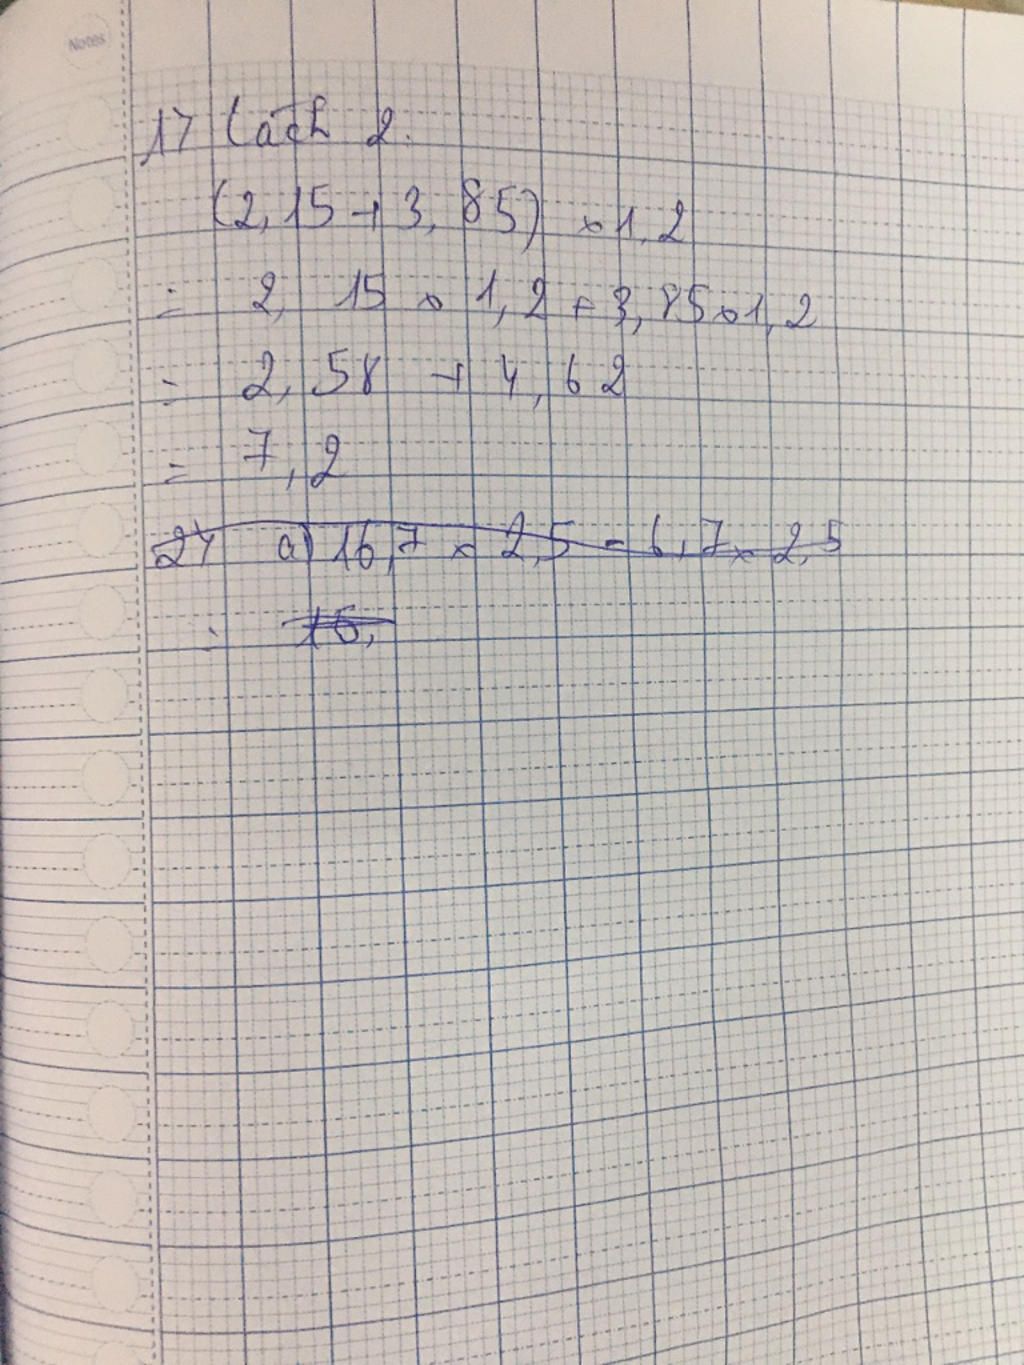 Notes
1> Cách 2.
(2,15 + 3,85) × 1,2
= 2,15 × 1,2 + 3,85 × 1,2
= 2,58 + 4,62
= 7,2
2> a) 16,7 × 2,5 - 6,7 × 2,5
= 16,